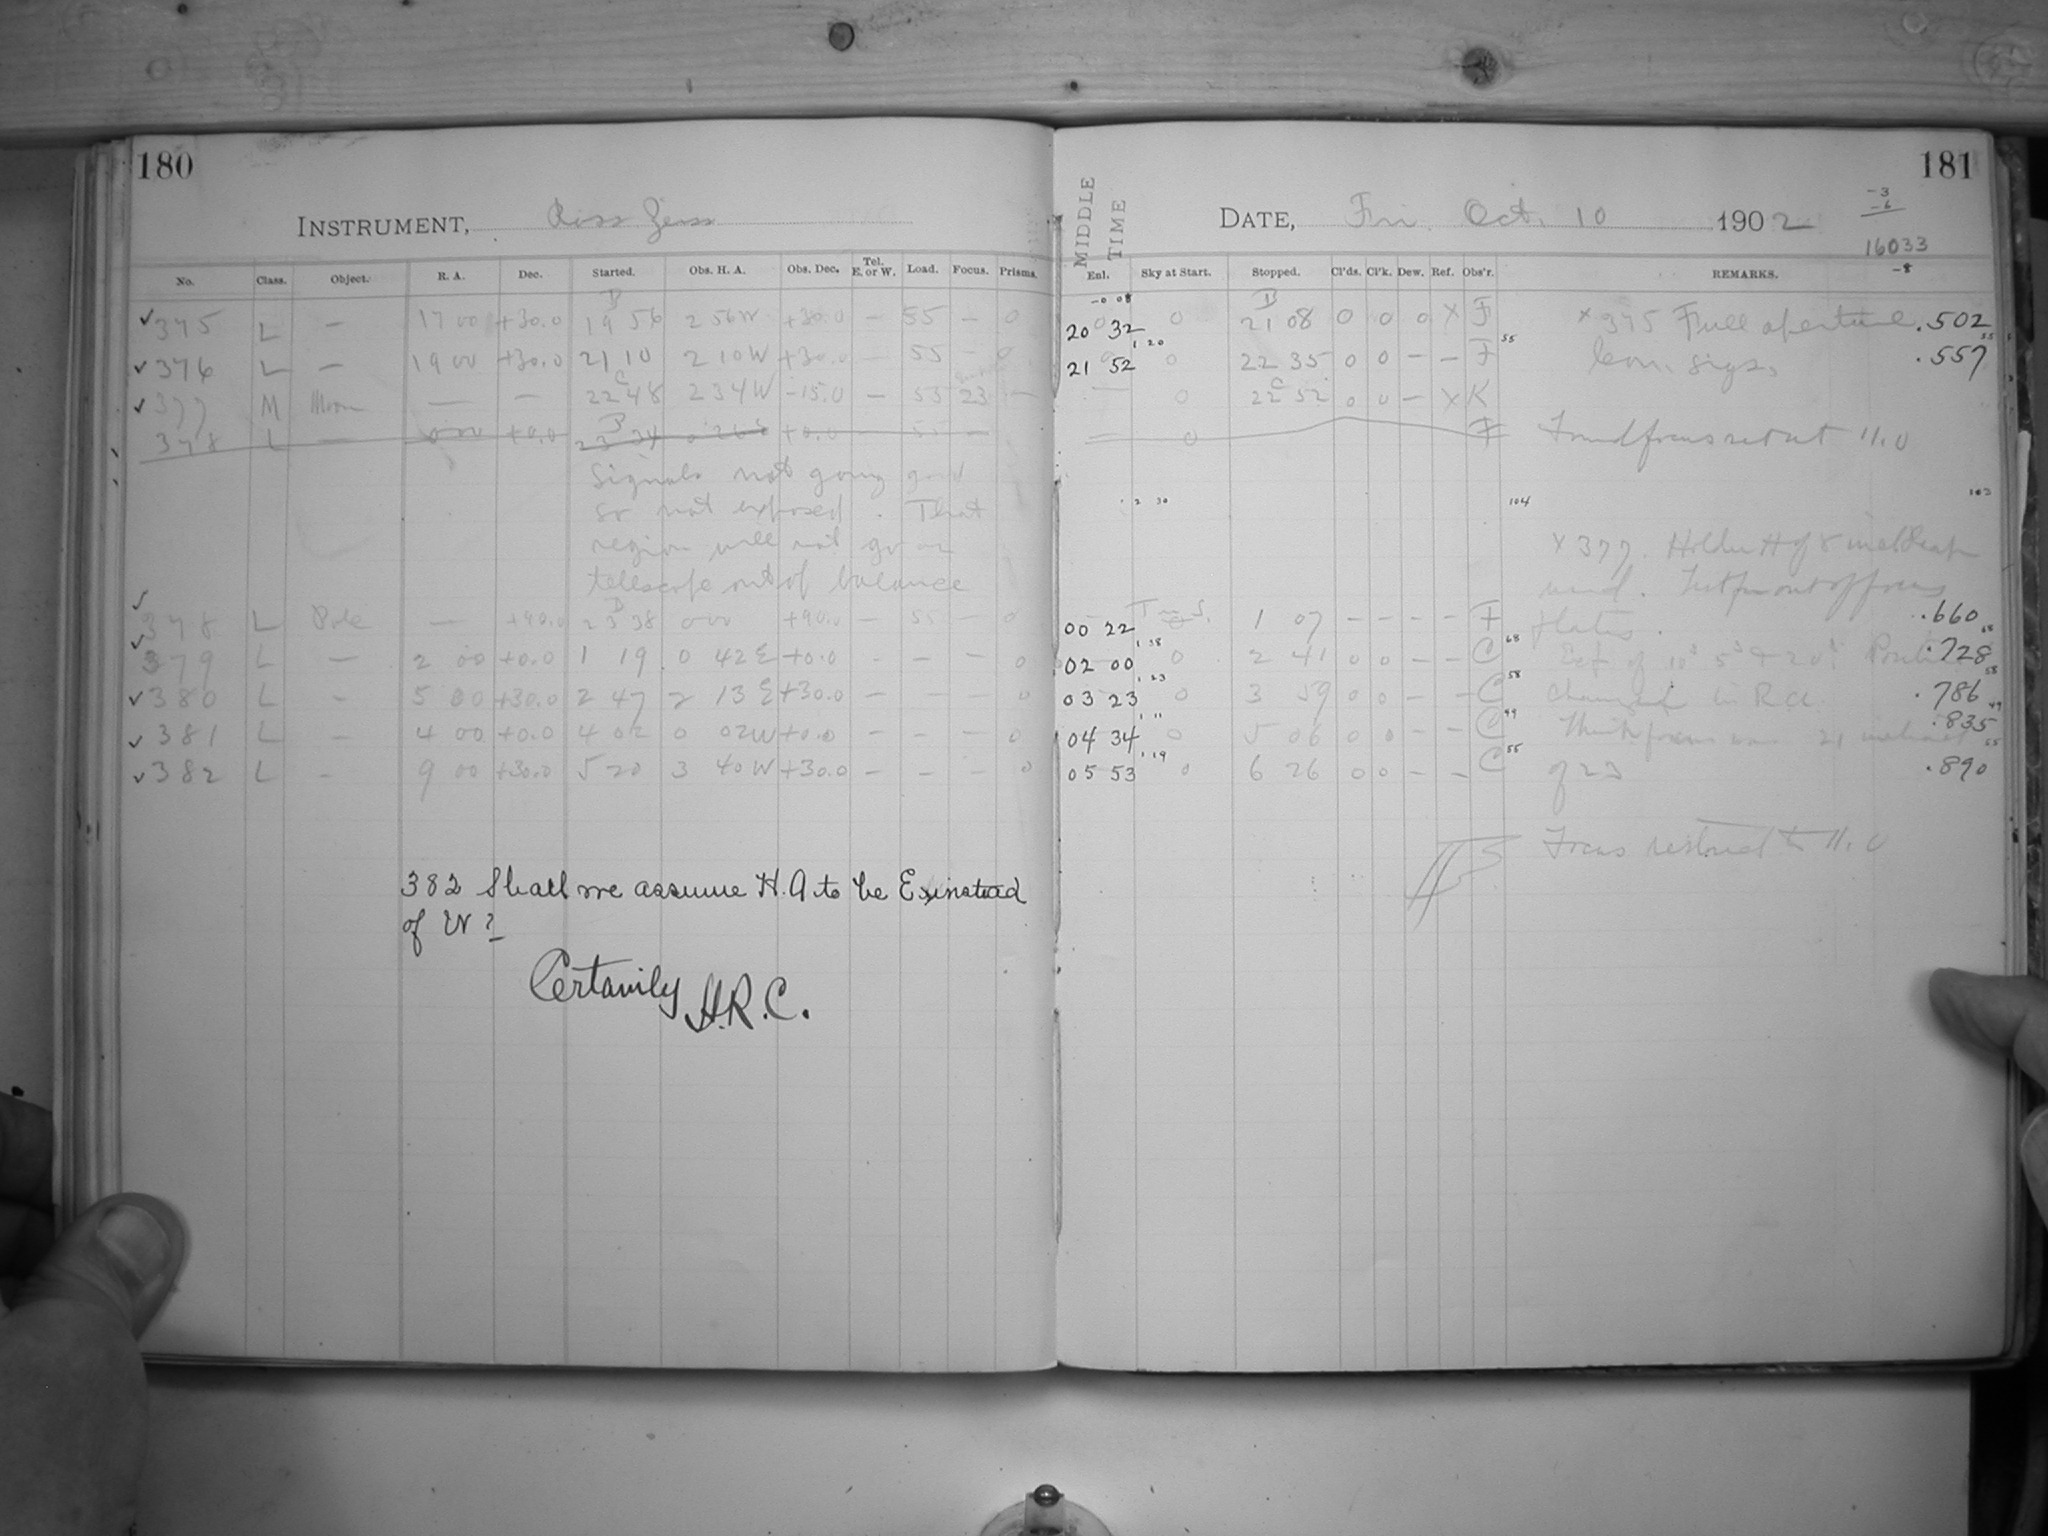 180
INSTRUMENT, Ross Zeiss
No. Class. Object. R. A. Dec. Started. Obs. H. A. Obs. Dec. Tel. E. or W. Load. Focus. Prisms.
375 L — 17 00 +30.0 B 19 56 2 56 W +30.0 — 55 — 0
376 L — 19 00 +30.0 21 10 2 10 W +30.0 — 55 — 0
377 M Moon — — C 22 48 2 34 W -15.0 — 55 23 —
378 L — 0 00 +0.0 B 23 34 +0.0 — 55 —
Signals not going good
so not exposed. That
region will not go on
telescope out of balance
378 L Pole — +90.0 B 23 38 0 00 +90.0 — 55 — 0
379 L — 2 00 +0.0 1 19 0 42 E +0.0 — — — 0
380 L — 5 00 +30.0 2 47 2 13 E +30.0 — — — 0
381 L — 4 00 +0.0 4 02 0 02 W +0.0 — — — 0
382 L — 9 00 +30.0 5 20 3 40 W +30.0 — — — 0
382 Shall we assume H.A to be E instead
of W?
Certainly H.R.C.
181
MIDDLE TIME
DATE, Fri Oct. 10 1902
-3
-6
16033
-8
Enl. Sky at Start. Stopped. Cl'ds. Cl'k. Dew. Ref. Obs'r. REMARKS.
-0 08
20 32 0 B 21 08 0 0 0 X F x 375 Full aperture .502
1 20 55 55
21 52 0 22 35 0 0 — — F Con. sigs. .557
— 0 C 22 52 0 0 — X K
0 F Found focus set at 11.0
2 30 104 103
x 377. Holder
used. out of focus
00 22 1 07 — — — — F plates. .660
1 38 68 68
02 00 0 2 41 0 0 — — C .728
1 23 58 58
03 23 0 3 59 0 0 — — C changed in R A .786
1 11 49 49
04 34 0 5 06 0 0 — — C Think focus was 21 instead .835
1 19 55 55
05 53 0 6 26 0 0 — — C of 23 .890
Focus restored to 11.0